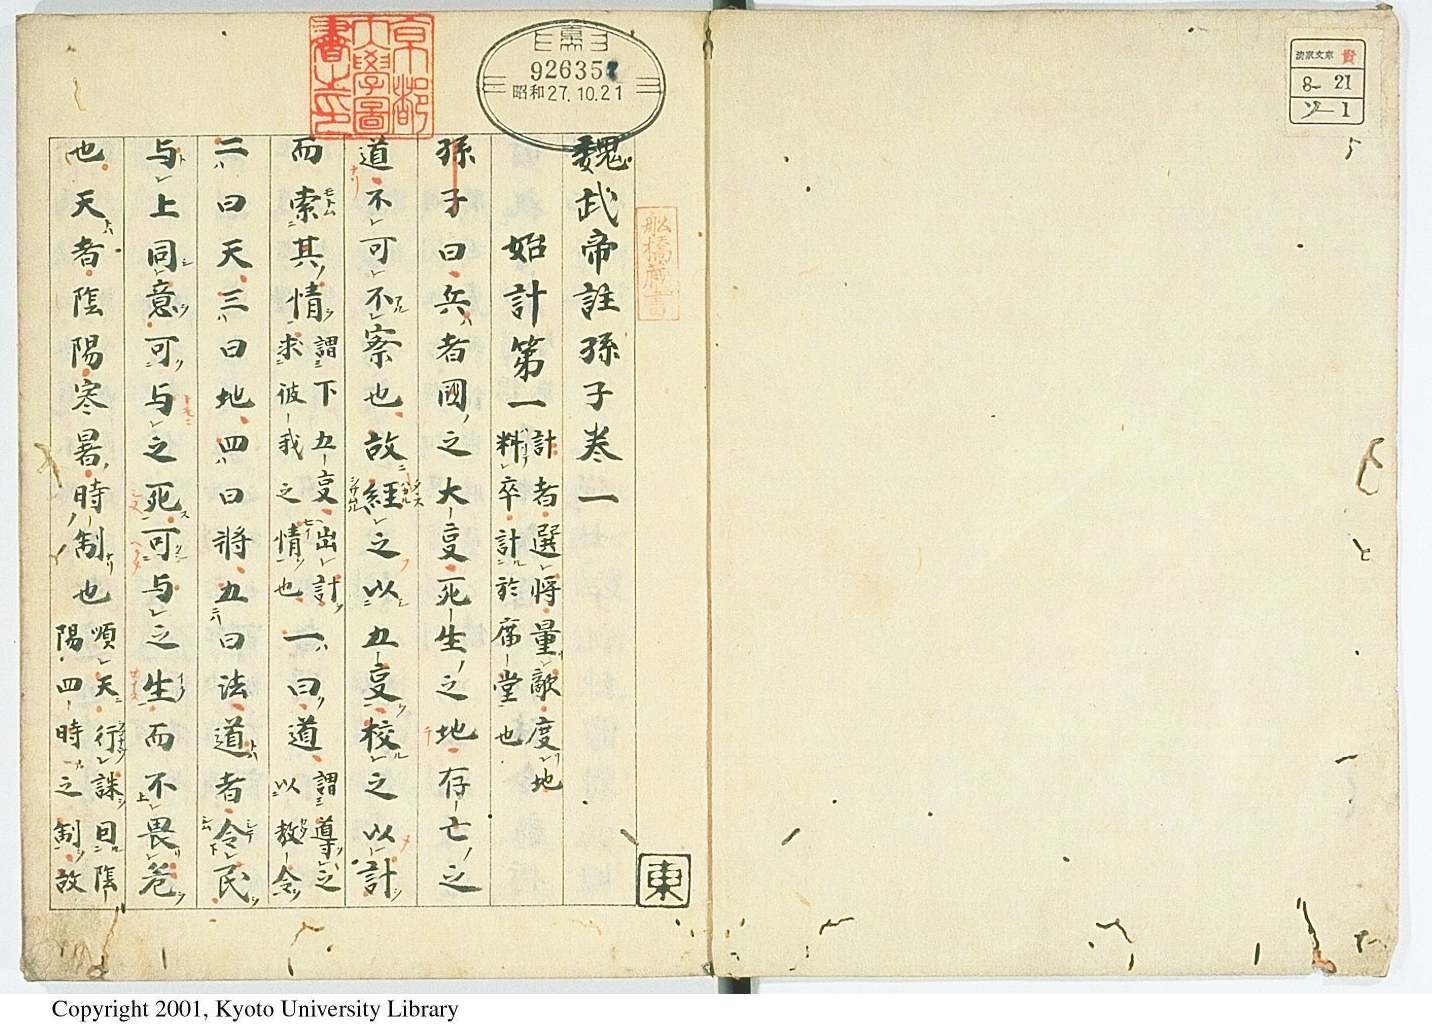 魏武帝註孫子卷一
始計第一 計者選將量敵度地料卒計於廟堂也
孫子曰兵者國之大事死生之地存亡之
道不可不察也故經之以五事校之以計
而索其情 謂下五事出計求彼我之情也 一曰道 謂導之以教令
二曰天三曰地四曰將五曰法道者令民
与上同意可与之死可与之生而不畏危
也天者陰陽寒暑時制也 順天行誅因陰陽四時之制故
京都
大學圖
書之印
926357
昭和27.10.21
舩橋蔵書
東
清家文庫 貴
8- 21
ソ- 1
Copyright 2001, Kyoto University Library